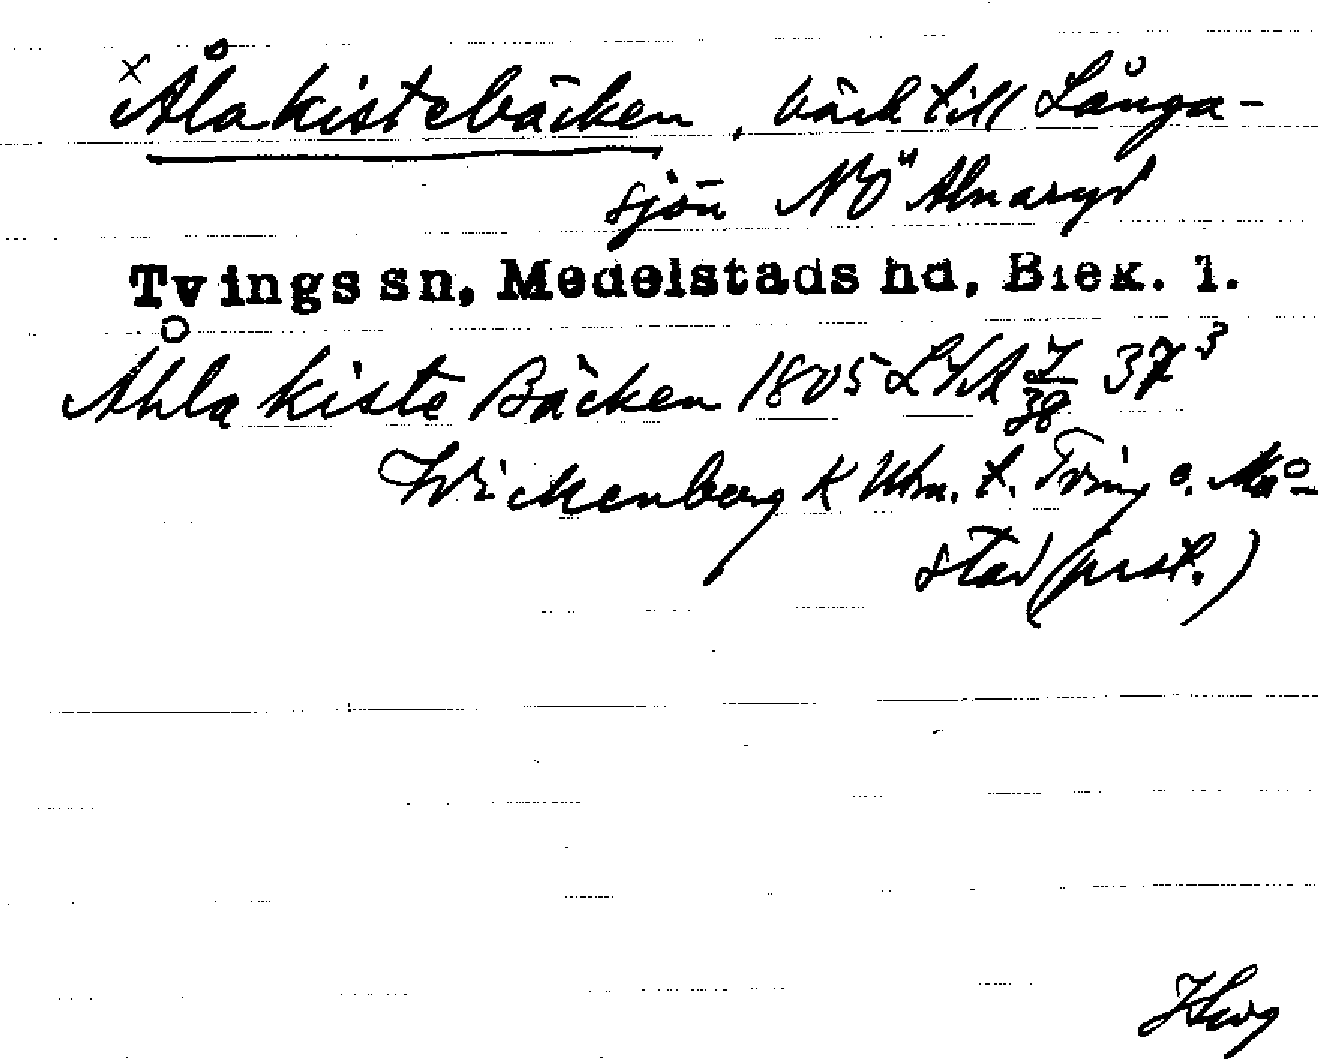 x Ålakistebäcken, bäck till Långa-
sjön NÖ Alnaryd
Tvings sn, Medelstads hd, Blek. l.
Åhla kiste Bäcken 1805 LSA 37³
Wickenberg K t. Tving o.
stad (prst.)